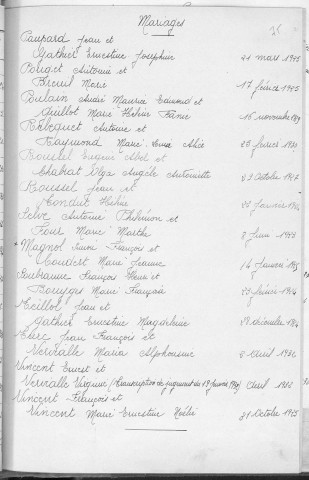 Mariages
35
Paupard Jean et
Gathier Ernestine Joséphine 21 mars 1905
Pouget Antoine et
Breuil Marie 17 février 1905
Poulain André Maurice Edmond et
Guillot Marie Hélène Fanie 15 novembre
Rebeguet Antoine et
Raymond Marie Alice 25 février 1920
Roussel Eugène Abel et
Chabrat Olga Angèle Antoinette 22 Octobre 1927
Roussel Jean et
Conduit Hélène Janvier
Selve Antoine Philémon et
Four Marie Marthe 8 Juin
Magnol François et
Coudert Marie Jeanne 14 Janvier
François Henri et
Marie François février
Teillol Jean et
Gathier Ernestine Magdeleine décembre
Jean François et
Vervialle Maria Alphonsine 8 Avril
Vincent Ernest et
Vervialle (Transcription de jugement du 19 Janvier) Avril 1902
Vincent François et
Vincent Marie Ernestine Noélie 31 Octobre 1925